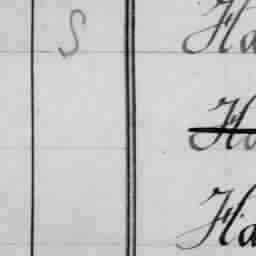 S Ha
Ha
Ha